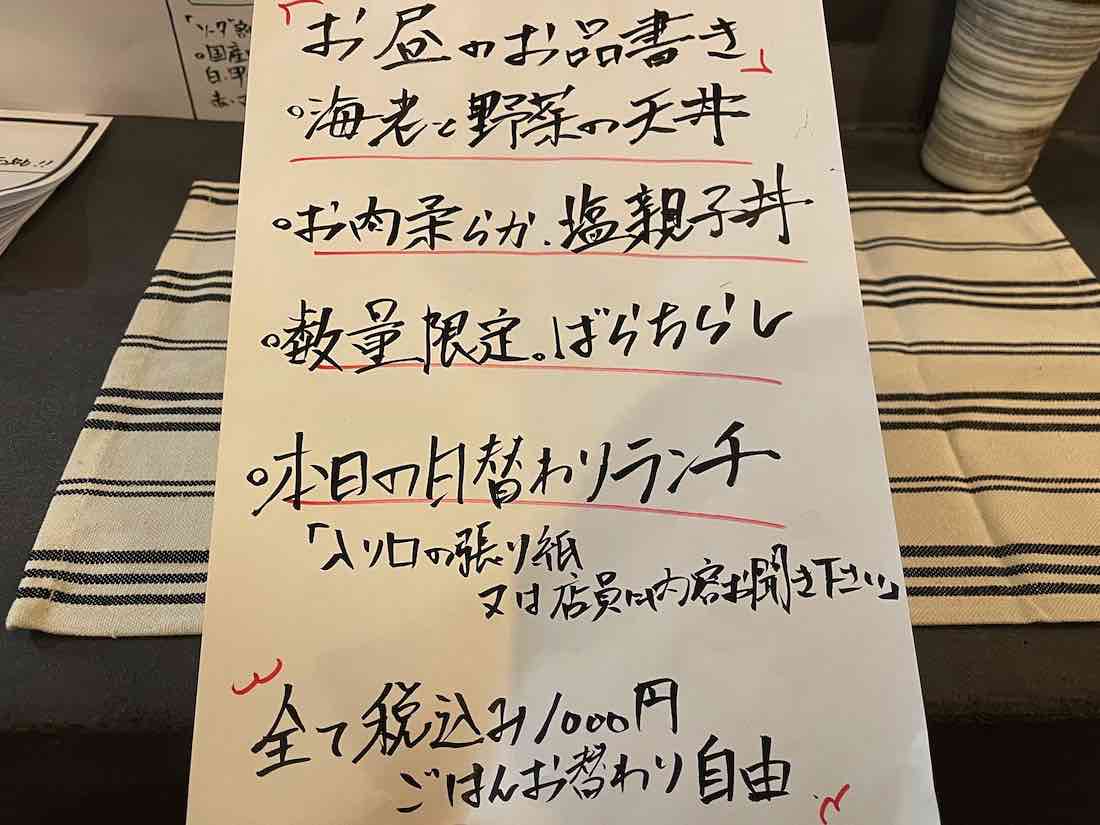 「お昼のお品書き」
・海老と野菜の天丼
・お肉柔らか、塩親子丼
・数量限定。ばらちらし
・本日の日替わりランチ
「入り口の張り紙
又は店員に内容お聞き下さい」
全て税込み1000円
ごはんお替わり自由